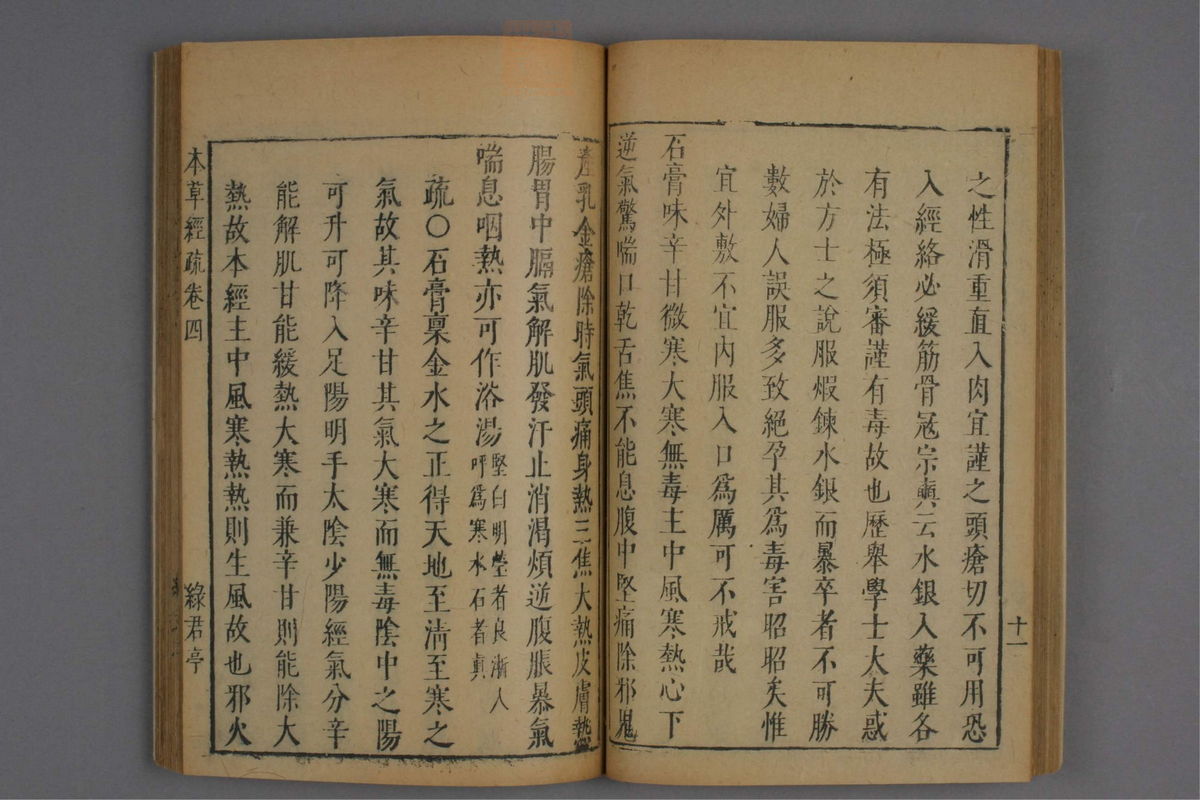 十一
之性滑重直入肉宜謹之頭瘡切不可用恐
入經絡必緩筋骨冦宗奭云水銀入藥雖各
有法極須審謹有毒故也歷舉學士大夫惑
於方士之說服煆鍊水銀而暴卒者不可勝
數婦人誤服多致絕孕其爲毒害昭昭矣惟
宜外敷不宜内服入口爲厲可不戒哉
石膏味辛甘微寒大寒無毒主中風寒熱心下
逆氣驚喘口乾舌焦不能息腹中堅痛除邪鬼
產乳金瘡除時氣頭痛身熱三焦大熱皮膚熱
腸胃中膈氣解肌發汗止消渴煩逆腹脹暴氣
喘息咽熱亦可作浴湯堅白明瑩者良浙人
呼爲寒水石者眞
疏〇石膏稟金水之正得天地至清至寒之
氣故其味辛甘其氣大寒而無毒陰中之陽
可升可降入足陽明手太陰少陽經氣分辛
能解肌甘能緩熱大寒而兼辛甘則能除大
熱故本經主中風寒熱熱則生風故也邪火
本草經疏卷四
綠君亭